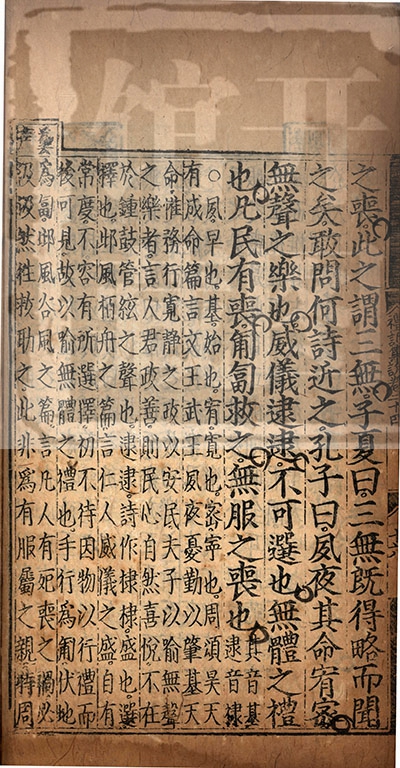 之喪此之謂三無子夏曰三無既得略而聞
之矣敢問何詩近之孔子曰夙夜其命宥密
無聲之樂也威儀逮逮不可選也無體之禮
也凡民有喪匍匐救之無服之喪也其音基
逮音棣
○夙早也基始也宥寬也密寧也周頌昊天
有成命篇言文王武王夙夜憂勤以肇基天
命惟務行寬靜之政以安民夫子以喻無聲
之樂者言人君政善則民心自然喜悅不在
於鍾鼓管絃之聲也逮逮詩作棣棣盛也選
擇也邶風柏舟之篇言仁人威儀之盛自有
常度不容有所選擇初不待因物以行禮而
後可見故以喻無體之禮也手行為匍伏地
為匐邶風谷風之篇言凡人有死喪之禍必
汲汲然往救助之此非為有服屬之親特周